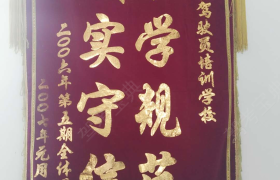 驾驶员培训学校
学规范
实守信
二〇〇六年第五期全体
二〇〇七年元月